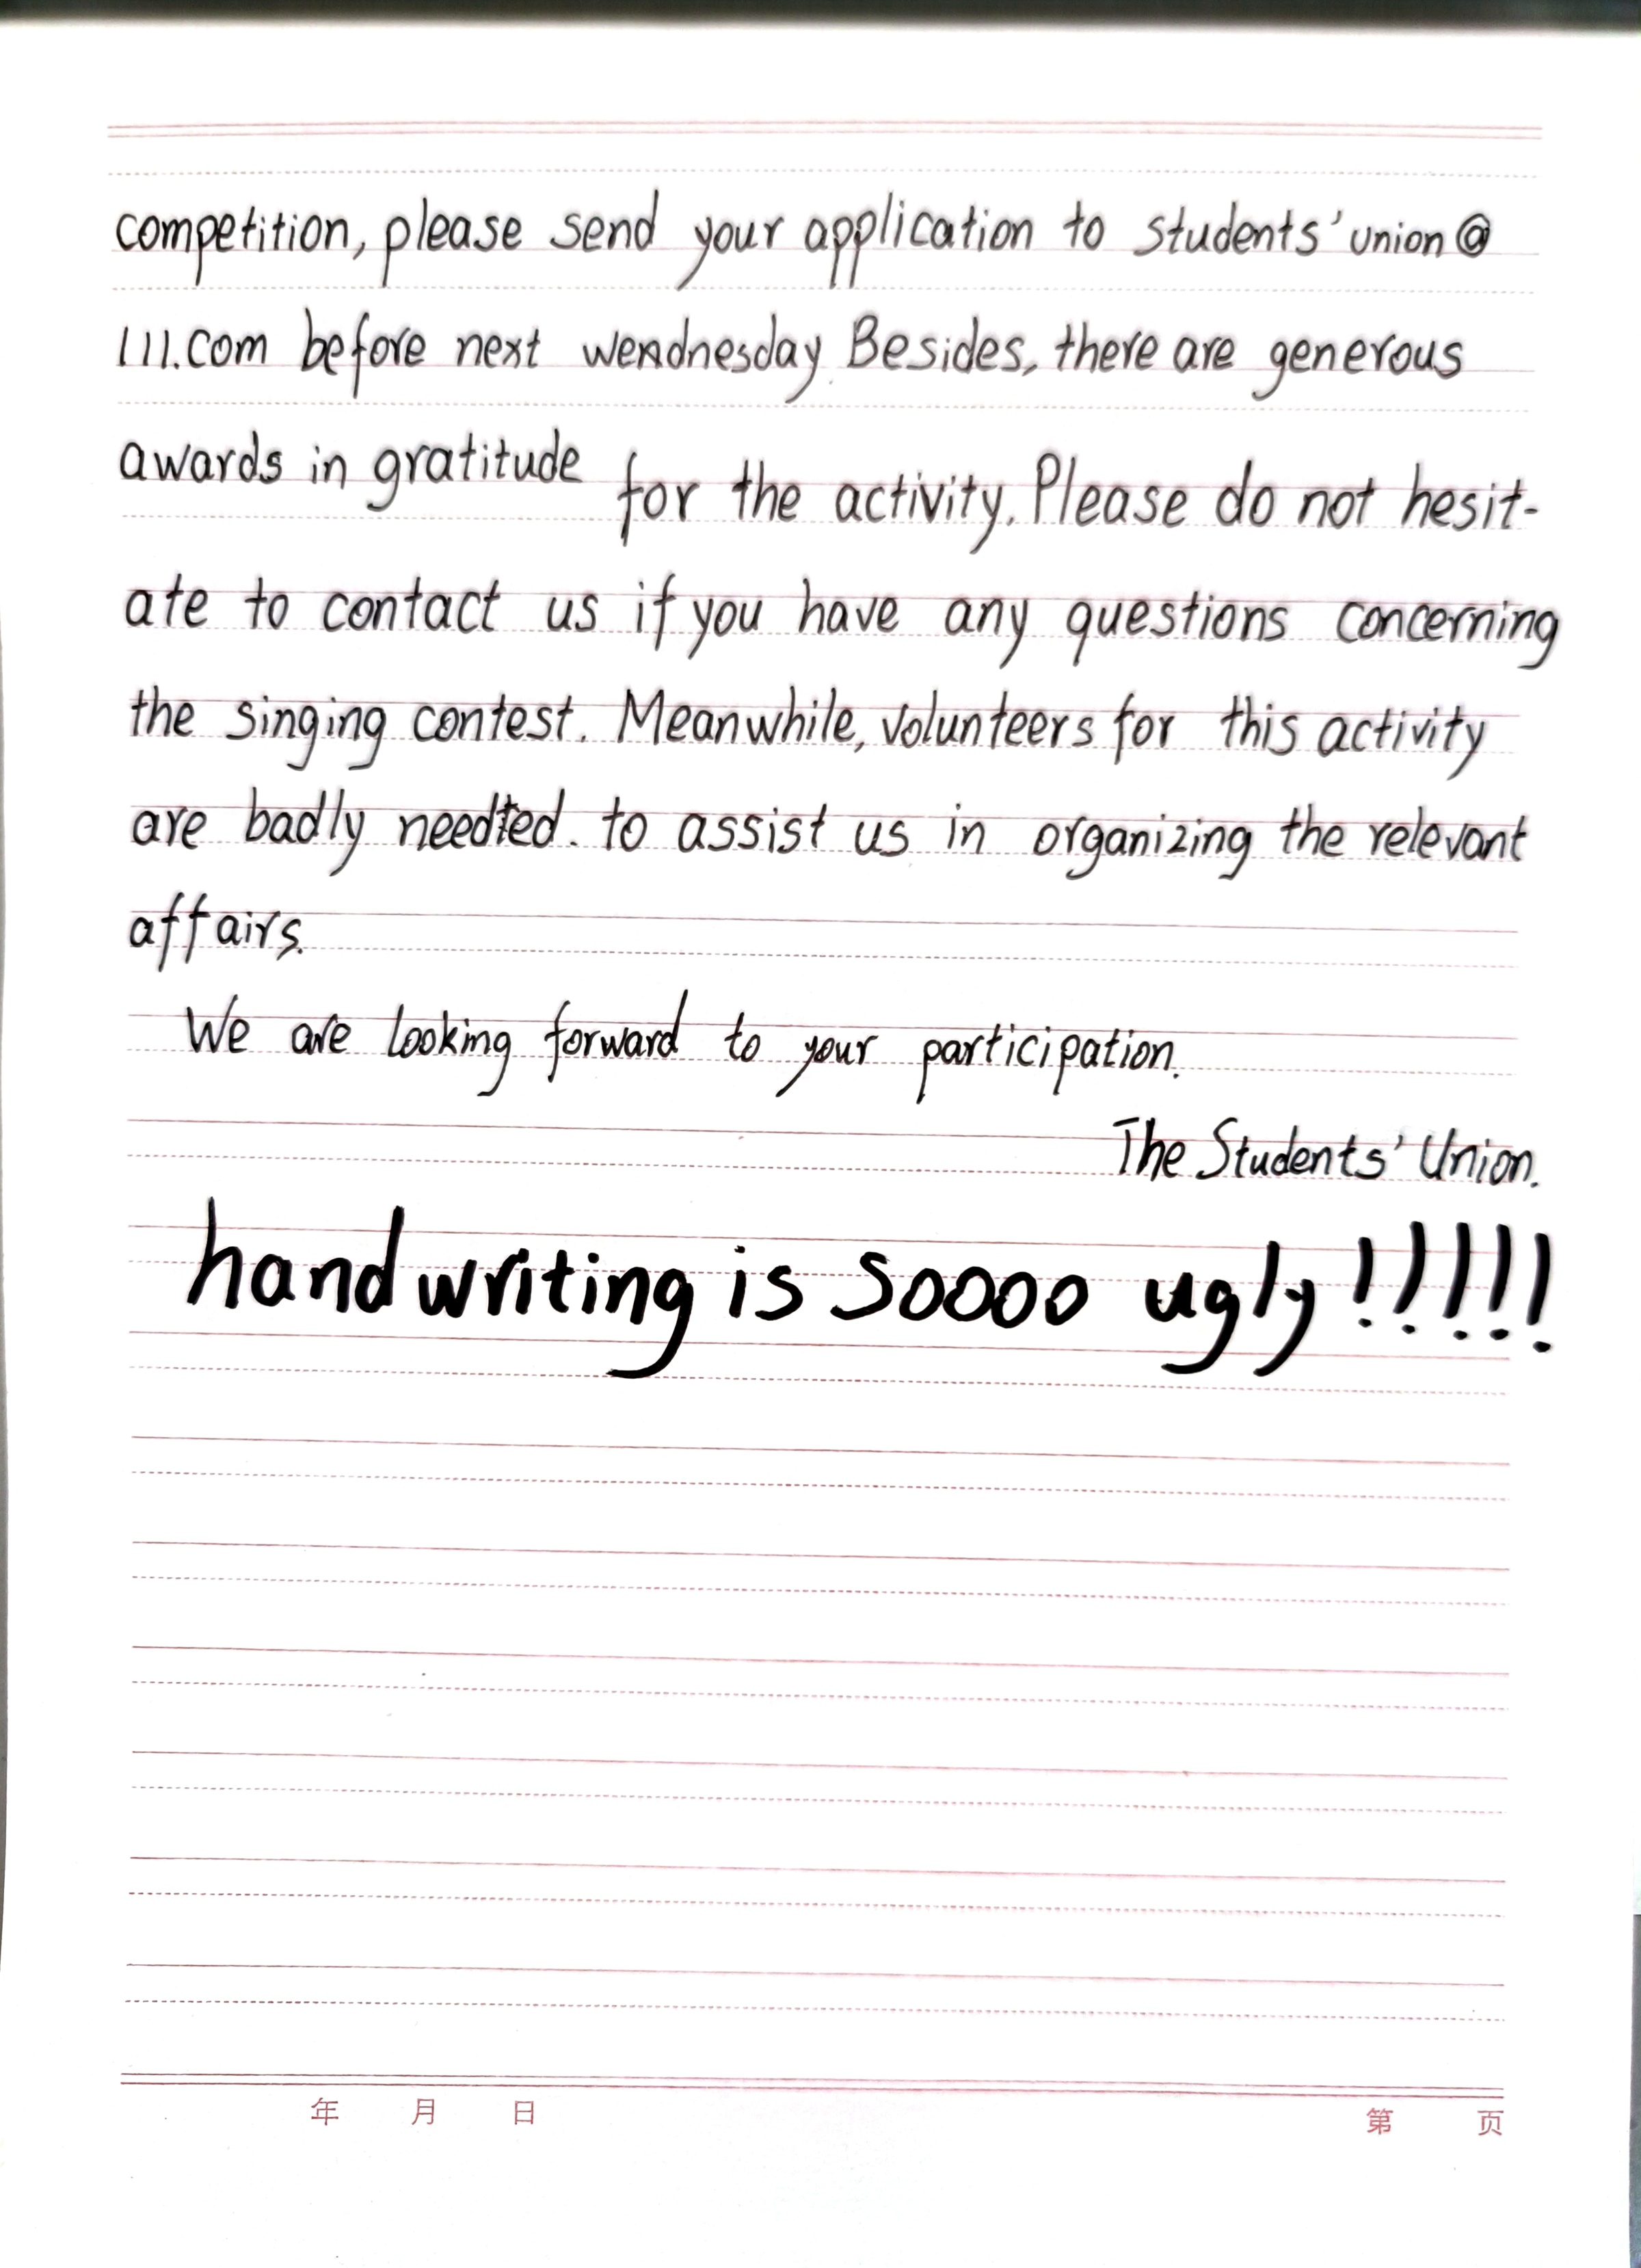 competition, please send your application to students' union@
111.com before next wendnesday. Besides, there are generous
awards in gratitude for the activity. Please do not hesit-
ate to contact us if you have any questions concerning
the singing contest. Meanwhile, volunteers for this activity
are badly needted. to assist us in organizing the relevant
affairs.
We are looking forward to your participation.
The Students' Union.
handwriting is soooo ugly!!!!!
年 月 日 第 页